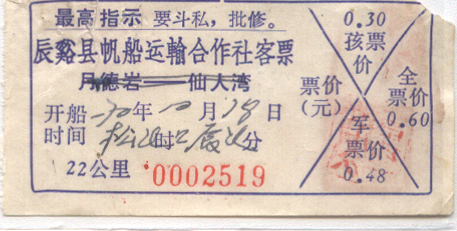 最高指示 要斗私，批修。
辰谿县帆船运输合作社客票
月德岩——仙人湾
开船 70年10月18日
时间 时 分
22公里 0002519
0.30
孩票价
票价
(元)
全票价
0.60
军票价
0.48